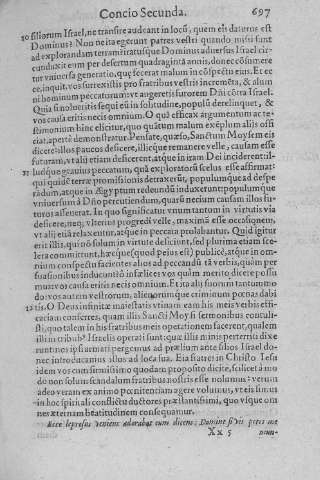 Concio Secunda. 697
filiorum Israel, ne transire audeant in locū, quem eis daturus est
Dominus? Non ne ita egerunt patres vestri quando misi sunt
ad explorandam terram? iratusque Dominus aduersus Israel cir-
cunduxit eum per desertum quadraginta annis, donec consumere
tur vniuersa generatio, quę fecerat malum in cōspectu eius. Et ec
ce, inquit, vos surrexistis pro fratribus vestris incremēta, & alum
ni hominum peccatorum: vt augeretis furorem Dñi cōtra Israel.
Quia si nolueritis sequi eū in solitudine, populū derelinquet, &
vos causa eritis necis omnium. O quā efficax argumentum ac te-
stimonium hinc elicitur, quo quātum malum exēplum alijs offi
ciat, apertè demonstratur. Pensate, quæso, Sanctum Moysem eis
dicere: illos paucos desicere, illicque remanere velle, causam esse
futuram, vt alij etiam deficerent, atque in iram Dei inciderent: il-
ludque grauius peccatum, quā exploratorū scelus esse affirmat:
qui quidē terræ promissionis detraxerūt, populumque ad despe
rādum, atque in Ægyptum redeundū induxerunt: populumque
vniuersum à Dño percutiendum, quasi necium causam illos fu-
turos asseuerat. In quo significatur vnum tantum in virtutis via
deficere, neq; vlterius progredi velle, maximā esse occasionem,
vt alij etiā relaxentur, atque in peccata prolabantur. Quid igitur
erit illis, qui nō solum in virtute deficiunt, sed plurima etiam sce-
lera committunt, hæcque (quod peius est) publicè, atque in om-
nium conspectu facientes alios ad peccandū tā verbis, quàm per
suasionibus inducunt? ō infælices vos quàm meritò dicere possu
mus: vos causa eritis necis omnium. Et ita alij suorum tantummo
do: vos autem vestrorum, alienorumque criminum pœnas dabi
tis. O Deus infinitæ maiestatis vtinam eam his meis verbis effi-
caciam conferres, quam illis Sancti Moysis sermonibus contuli-
sti, quo talem in his fratribus meis operationem facerent, qualem
illi in tribub⁹ Israelis operati sunt: quæ illis minis perterriti dixe
runt nos ipsi armati pergemus ad prælium ante filios Israel do-
nec introducamus illos ad loca sua. Eia fratres in Christo Iesu
idem vos cum firmissimo quodam proposito dicite, scilicet à mo
do non solum scandalum fratribus nostris esse nolumus: verum
adeo veram ex animo pœnitentiam agere volumus, vt eis simus
in hoc spirituali conflictu ductores præstantissimi, quo vsque om
nes æternam beatitudinem consequamur.
Ecce leprosus veniens adorabat eum dicens: Domine si vis potes me
Xx 5 mun-